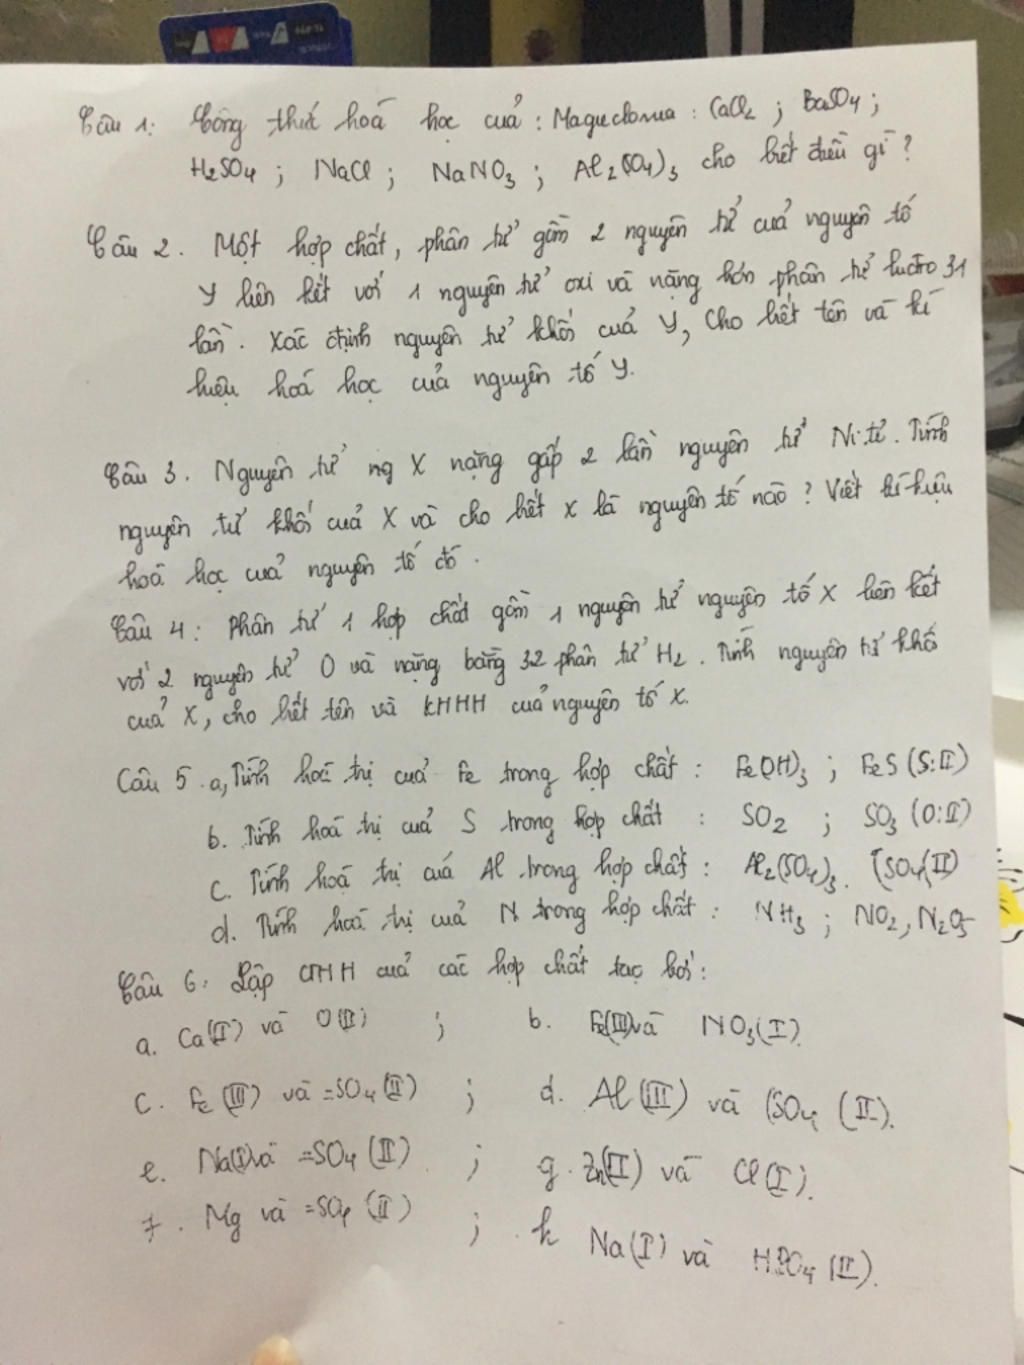 Câu 1: Công thức hoá học của : Magieclorua : CaCl2 ; BaSO4 ;
H2SO4 ; NaCl ; NaNO3 ; Al2(SO4)3 cho biết điều gì ?
Câu 2. Một hợp chất, phân tử gồm 2 nguyên tử của nguyên tố
Y liên kết với 1 nguyên tử oxi và nặng hơn phân tử hiđro 31
lần. Xác định nguyên tử khối của Y, Cho biết tên và kí
hiệu hoá học của nguyên tố Y.
Câu 3. Nguyên tử ng X nặng gấp 2 lần nguyên tử Ni tơ. Tính
nguyên tử khối của X và cho biết X là nguyên tố nào ? Viết kí hiệu
hoá học của nguyên tố đó.
Câu 4 : Phân tử 1 hợp chất gồm 1 nguyên tử nguyên tố X liên kết
với 2 nguyên tử O và nặng bằng 32 phân tử H2. Tính nguyên tử khối
của X, cho biết tên và KHHH của nguyên tố X.
Câu 5. a, Tính hoá trị của Fe trong hợp chất : Fe(OH)3 ; FeS (S:II)
b. Tính hoá trị của S trong hợp chất : SO2 ; SO3 (O:II)
c. Tính hoá trị của Al trong hợp chất : Al2(SO4)3. (SO4(II)
d. Tính hoá trị của N trong hợp chất : NH3 ; NO2, N2O5
Câu 6. Lập CTHH của các hợp chất tạo bởi :
a. Ca(II) và O(II) ; b. Fe(III) và NO3(I)
c. Fe (III) và =SO4 (II) ; d. Al (III) và (SO4 (II).
e. Na(I) và =SO4 (II) ; g. Zn(II) và Cl(I).
f. Mg và =SO4 (II) ; h Na(I) và HPO4 (II).